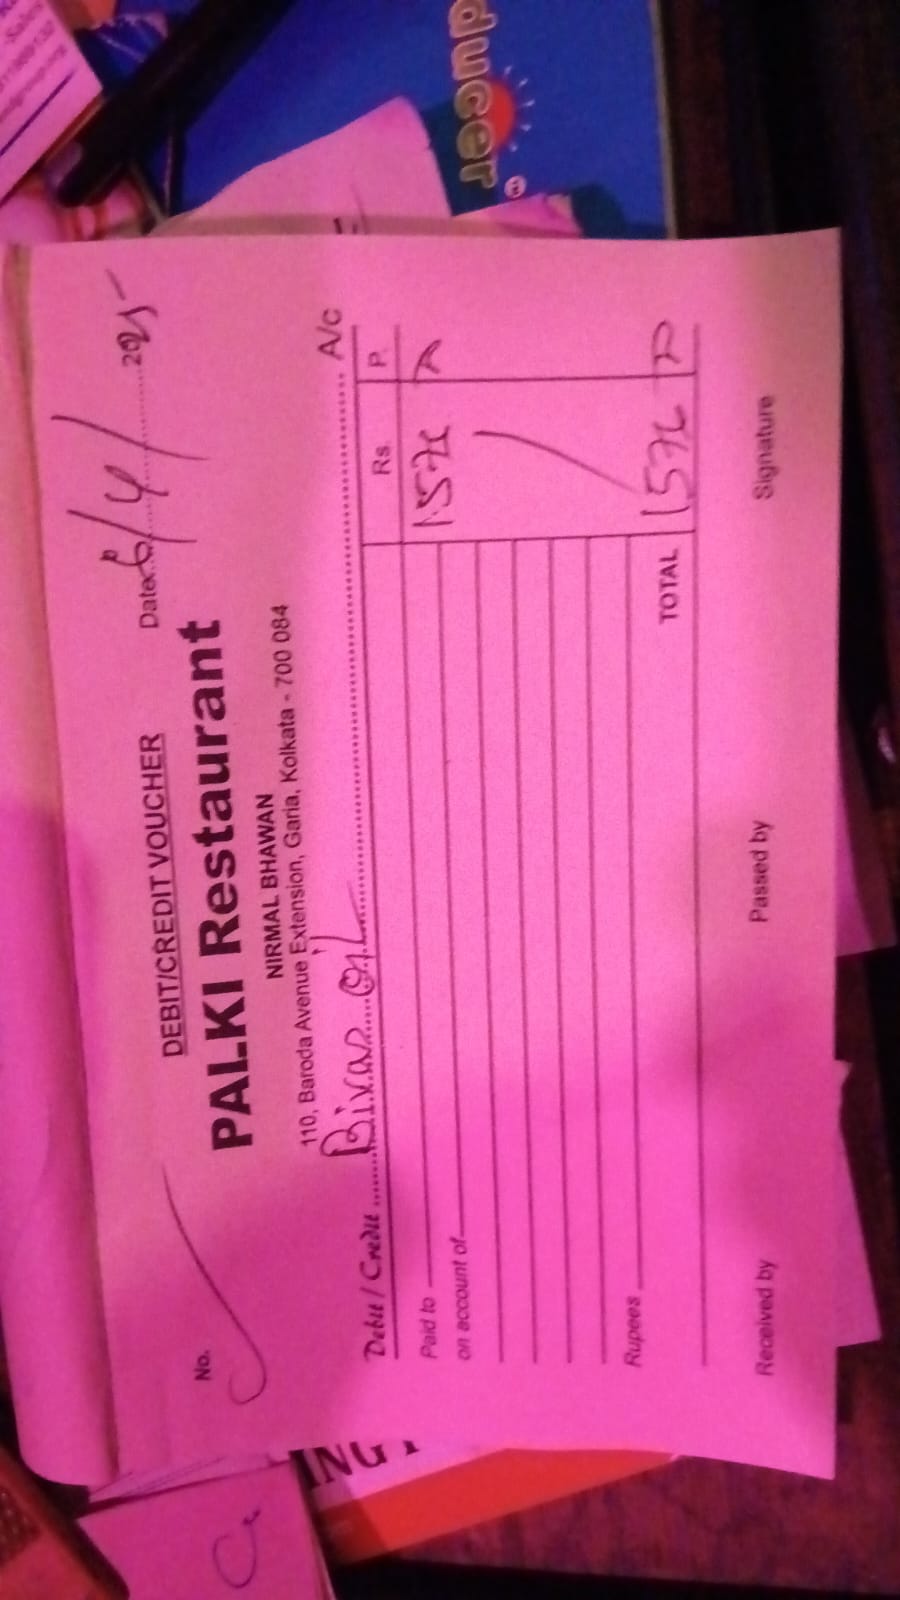 DEBIT/CREDIT VOUCHER
No.
Date 6/4/2025
PALKI Restaurant
NIRMAL BHAWAN
110, Baroda Avenue Extension, Garia, Kolkata - 700 084
Debit / Credit Oil A/c
Rs. P.
Paid to
on account of
Rupees
TOTAL
Received by Passed by Signature
ducer
ING